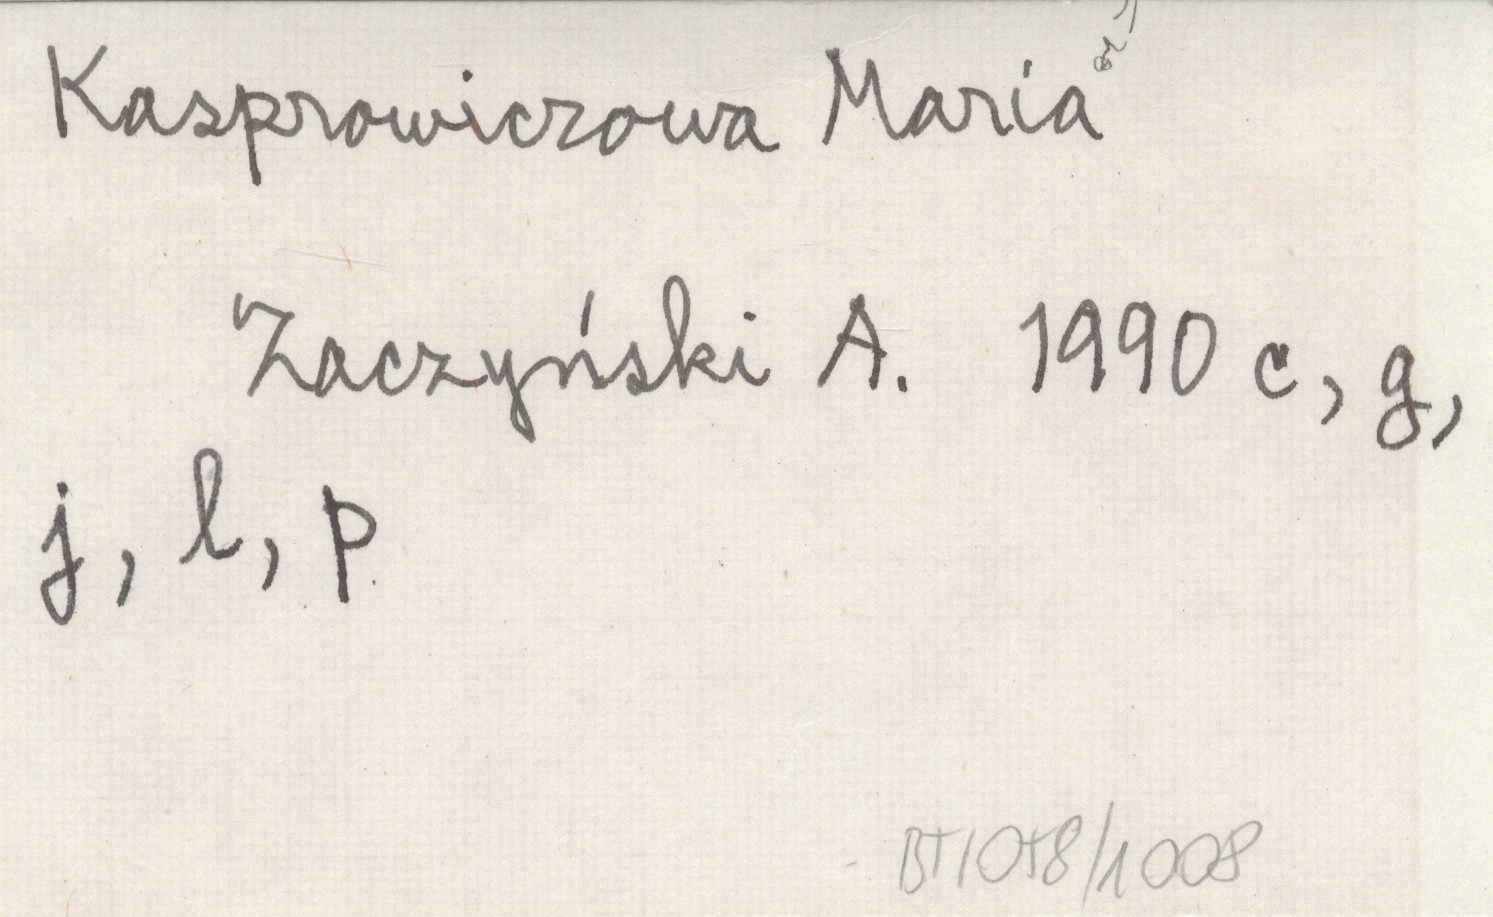 Kasprowiczowa Maria
Zaczyński A. 1990 c, g,
j, l, p
BT/058/1008